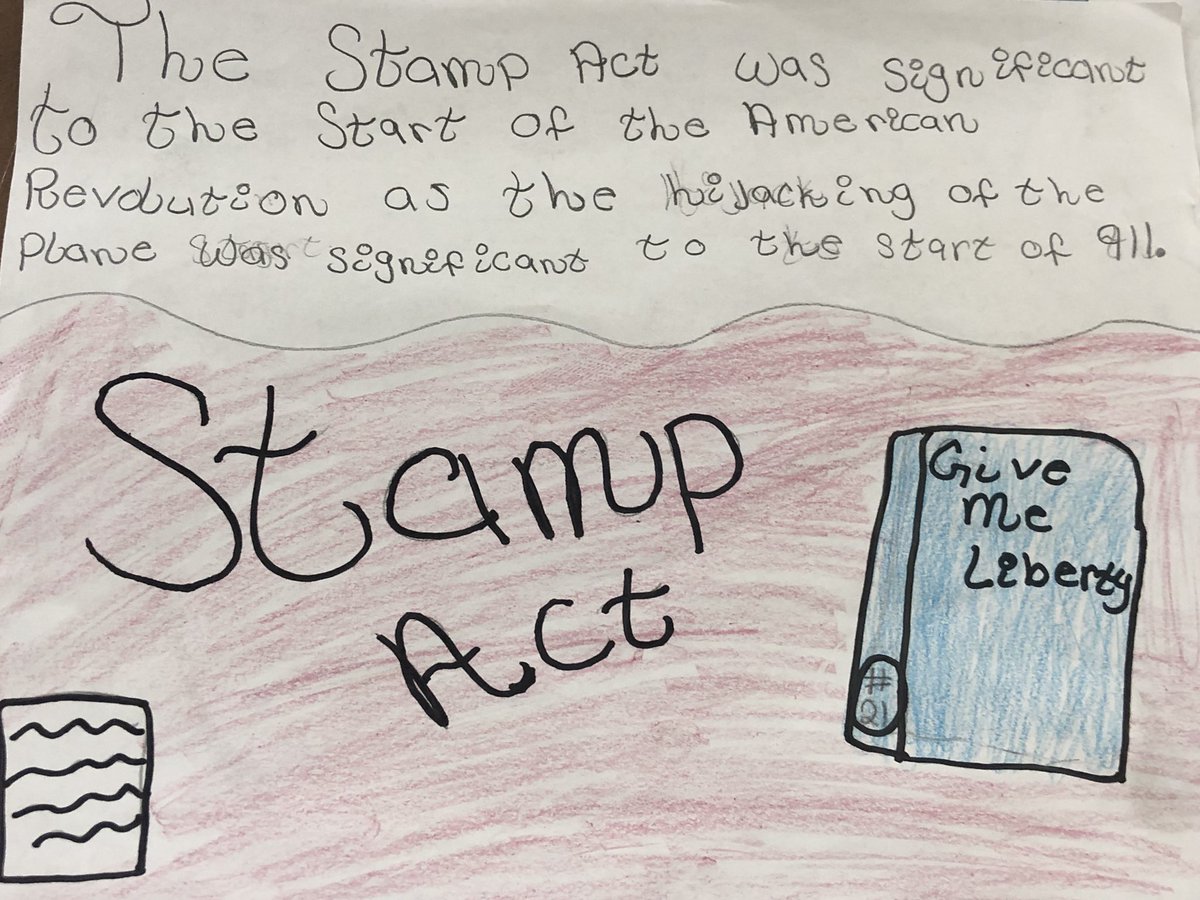 The Stamp Act was significant
to the Start of the American
Revolution as the hijacking of the
Plane was significant to the start of 911.
Stamp
Act
Give
Me
Liberty
#
21